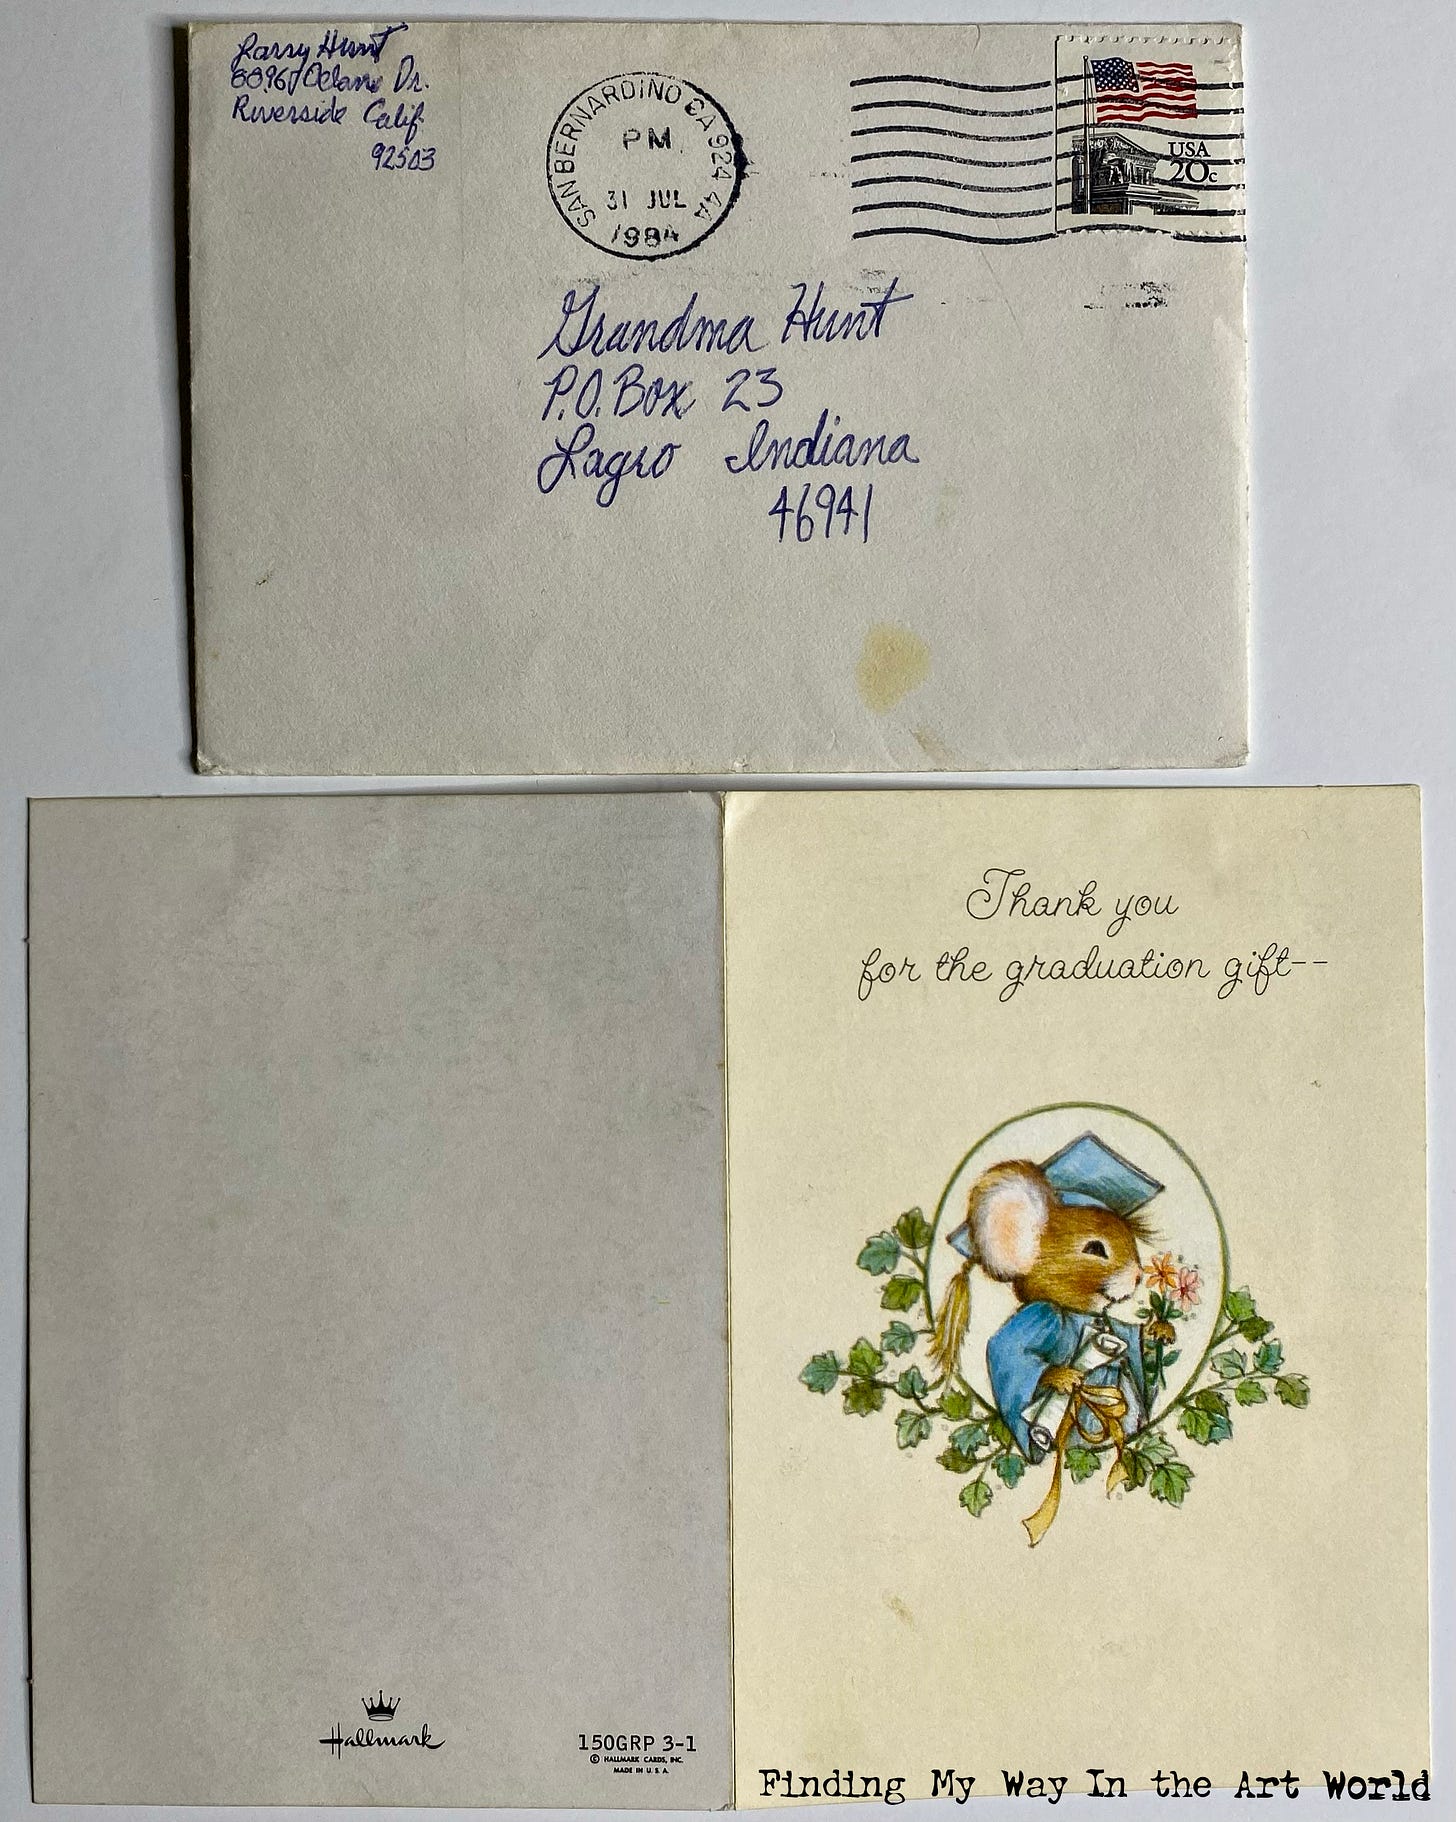 Larry Hunt
Dr.
Riverside Calif
92503
SAN BERNARDINO CA 924 4A
PM
31 JUL
1984
USA
20c
Grandma Hunt
P.O. Box 23
Lagro Indiana
46941
Thank you
for the graduation gift--
Hallmark
150GRP 3-1
© HALLMARK CARDS, INC.
MADE IN U.S.A.
Finding My Way In the Art World